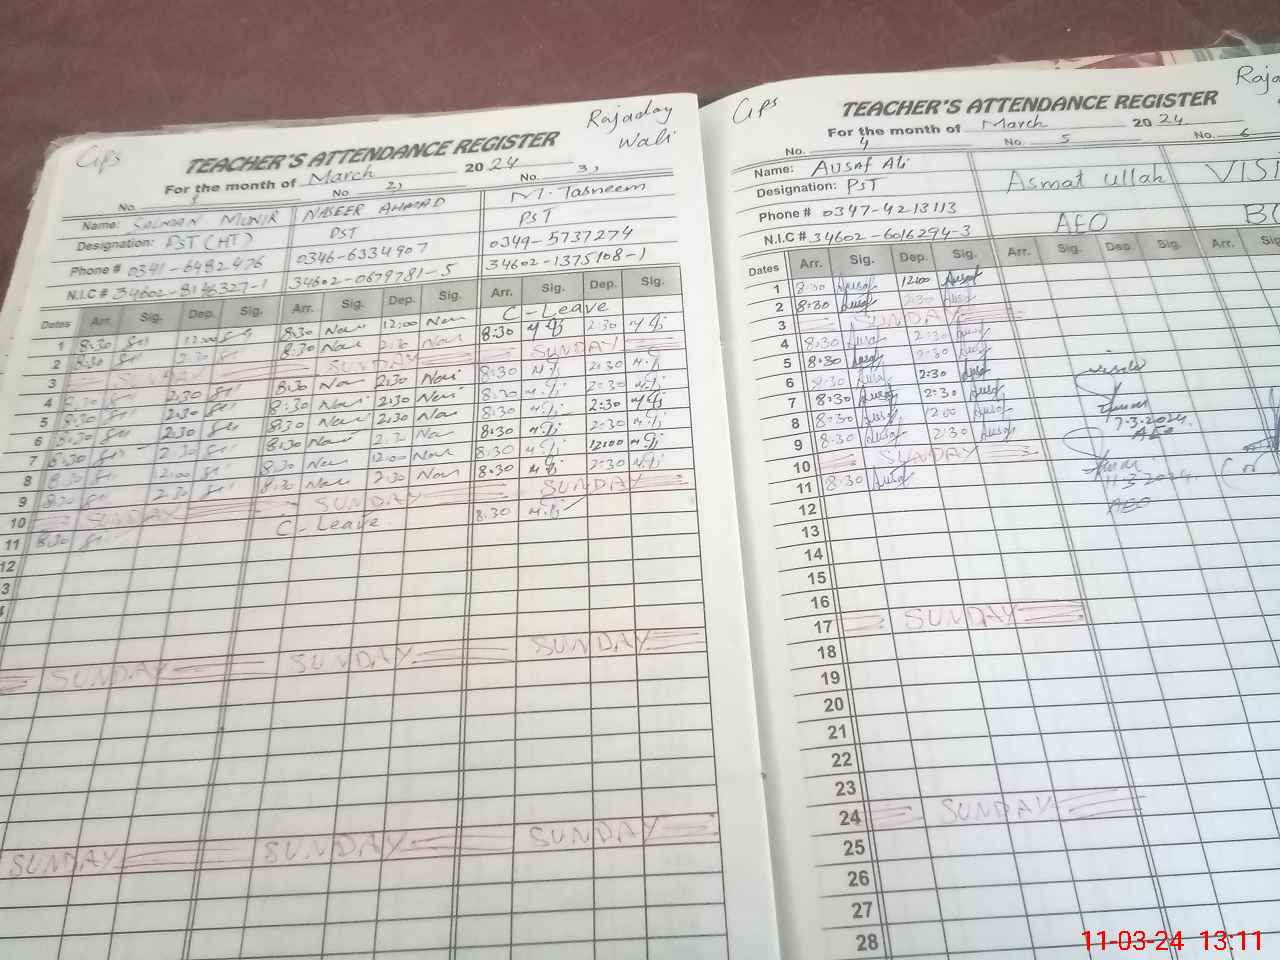 Gps
Rajaday
Wali
TEACHER'S ATTENDANCE REGISTER
For the month of March 2024
No. 1 No. 2, No. 3,
Name: SALMAN MUNIR NASEER AHMAD M. Tasneem
Designation: PST (HT) PST PST
Phone # 0341-6482476 0346-6334907 0349-5737274
N.I.C # 34602-8146327-1 34602-0679781-5 34602-1375108-1
Dates Arr. Sig. Dep. Sig. Arr. Sig. Dep. Sig. Arr. Sig. Dep. Sig.
1 8:30 12:00 8:30 12:00 C-Leave
2 8:30 2:30 8:30 2:30 8:30 2:30
3 SUNDAY SUNDAY SUNDAY
4 8:30 2:30 8:30 2:30 8:30 2:30
5 8:30 2:30 8:30 2:30 8:30 2:30
6 8:30 2:30 8:30 2:30 8:30 2:30
7 8:30 2:30 8:30 2:30 8:30 2:30
8 8:30 12:00 8:30 12:00 8:30 12:00
9 8:30 2:30 8:30 2:30 8:30 2:30
10 SUNDAY SUNDAY SUNDAY
11 8:30 C-Leave 8:30
12
SUNDAY SUNDAY SUNDAY
SUNDAY SUNDAY SUNDAY
Gps
TEACHER'S ATTENDANCE REGISTER
For the month of March 2024
No. 4 No. 5 No. 6
Name: AUSAF Ali Asmat ullah
Designation: PST AEO
Phone # 0347-4213113
N.I.C # 34602-6016294-3
Dates Arr. Sig. Dep. Sig. Arr. Sig. Dep. Sig. Arr.
1 8:30 Ausaf 12:00 Ausaf
2 8:30 Ausaf 2:30 Ausaf
3 SUNDAY
4 8:30 Ausaf 2:30 Ausaf
5 8:30 Ausaf 2:30 Ausaf
6 8:30 Ausaf 2:30 Ausaf
7 8:30 Ausaf 2:30 Ausaf
8 8:30 Ausaf 12:00 Ausaf
7-3-2024
AEO
9 8:30 Ausaf 2:30 Ausaf
10 SUNDAY
11 8:30 Ausaf
11-3-2024
AEO
12
13
14
15
16
17 SUNDAY
18
19
20
21
22
23
24 SUNDAY
25
26
27
28
11-03-24 13:11